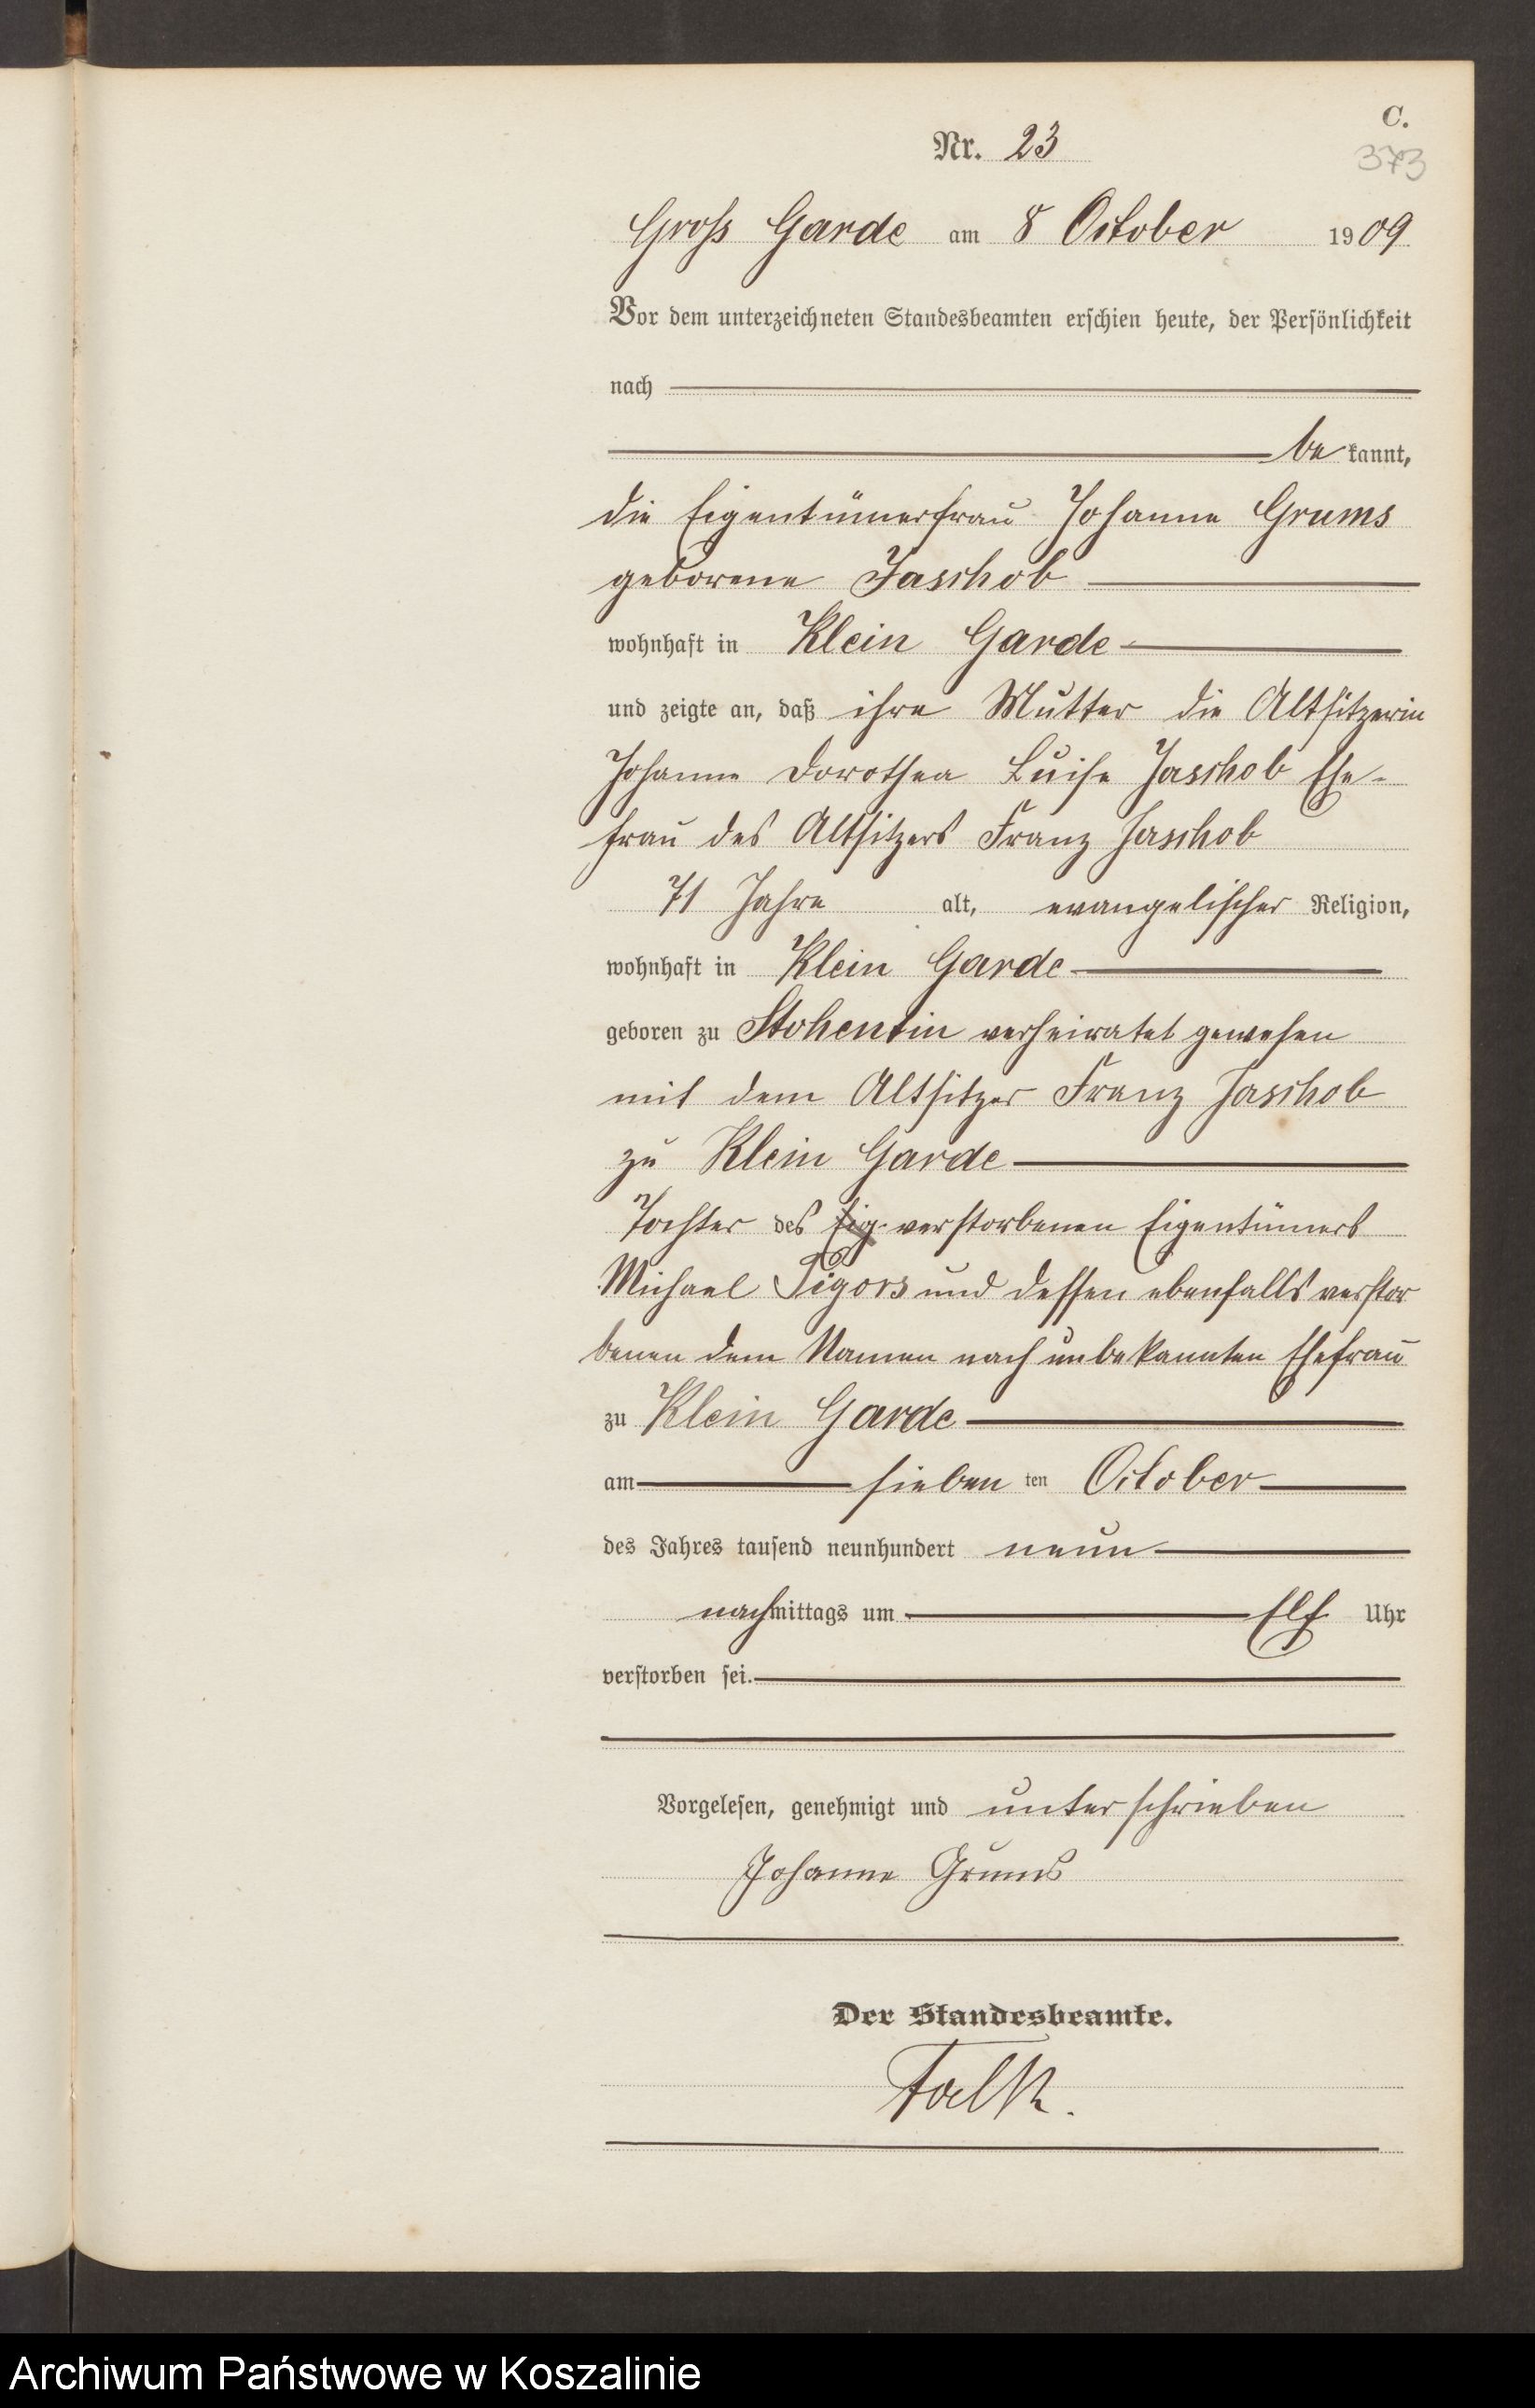 C.
Nr. 23
373
Groß Garde am 8 October 1909
Vor dem unterzeichneten Standesbeamten erschien heute, der Persönlichkeit
nach
be kannt,
die Eigentümerfrau Johanne Grums
geborene Jaschob
wohnhaft in Klein Garde
und zeigte an, daß ihre Mutter die Altsitzerin
Johanne Dorothea Luise Jaschob Ehe-
frau des Altsitzers Franz Jaschob
71 Jahre alt, evangelischer Religion,
wohnhaft in Klein Garde
geboren zu Stohentin verheiratet gewesen
mit dem Altsitzer Franz Jaschob
zu Klein Garde
Tochter des Eig. verstorbenen Eigentümers
Michael Pigors und dessen ebenfalls verstor
benen dem Namen nach unbekannten Ehefrau
zu Klein Garde
am sieben ten October
des Jahres tausend neunhundert neun
nachmittags um Elf Uhr
verstorben sei.
Vorgelesen, genehmigt und unterschrieben
Johanne Grums
Der Standesbeamte.
Falk.
Archiwum Państwowe w Koszalinie